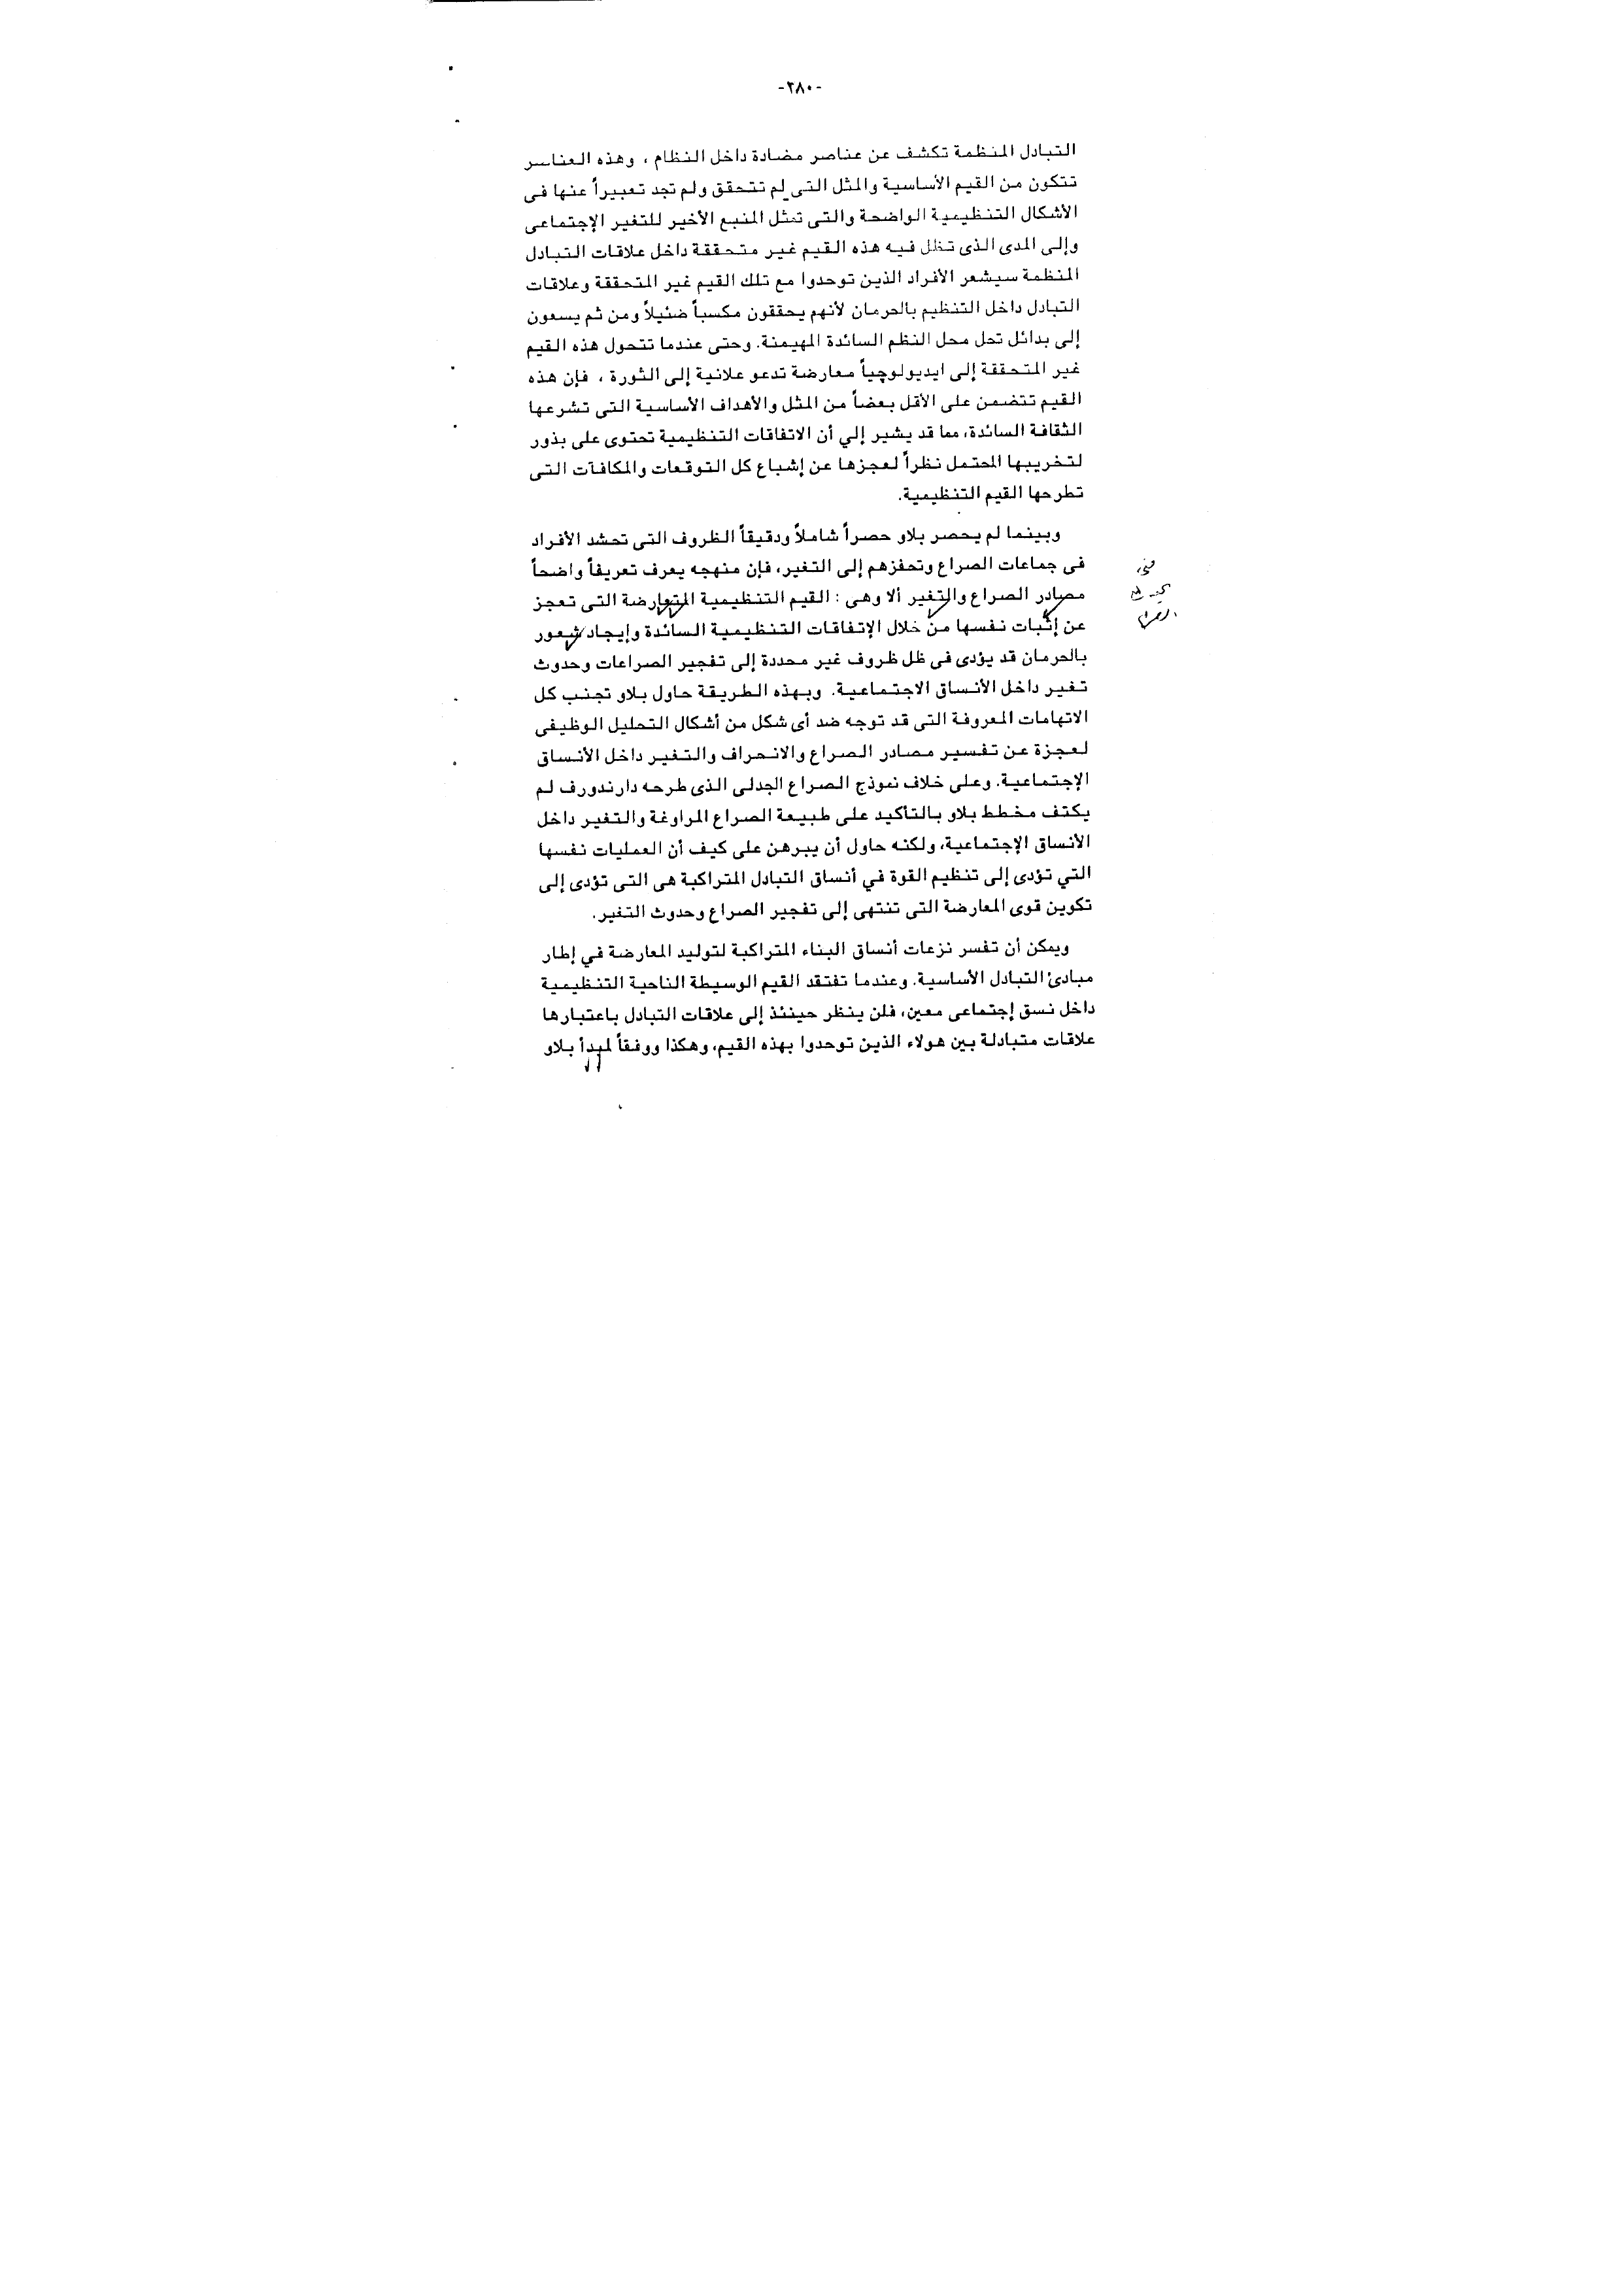 -٢٨٠-
التبادل المنظمة تكشف عن عناصر مضادة داخل النظام ، وهذه العناصر
تتكون من القيم الأساسية والمثل التى لم تتحقق ولم تجد تعبيراً عنها فى
الأشكال التنظيمية الواضحة والتى تمثل المنبع الأخير للتغير الإجتماعى
وإلى المدى الذى تظل فيه هذه القيم غير متحققة داخل علاقات التبادل
المنظمة سيشعر الأفراد الذين توحدوا مع تلك القيم غير المتحققة وعلاقات
التبادل داخل التنظيم بالحرمان لأنهم يحققون مكسباً ضئيلاً ومن ثم يسعون
إلى بدائل تحل محل النظم السائدة المهيمنة. وحتى عندما تتحول هذه القيم
غير المتحققة إلى ايديولوچياً معارضة تدعو علانية إلى الثورة ، فإن هذه
القيم تتضمن على الأقل بعضاً من المثل والأهداف الأساسية التى تشرعها
الثقافة السائدة، مما قد يشير إلي أن الاتفاقات التنظيمية تحتوى على بذور
لتخريبها المحتمل نظراً لعجزها عن إشباع كل التوقعات والمكافآت التى
تطرحها القيم التنظيمية.
وبينما لم يحصر بلاو حصراً شاملاً ودقيقاً الظروف التى تحشد الأفراد
فى جماعات الصراع وتحفزهم إلى التغير، فإن منهجه يعرف تعريفاً واضحاً
مصادر الصراع والتغير ألا وهى : القيم التنظيمية المتعارضة التى تعجز
عن إثبات نفسها من خلال الإتفاقات التنظيمية السائدة وإيجاد شعور
بالحرمان قد يؤدى فى ظل ظروف غير محددة إلى تفجير الصراعات وحدوث
تغير داخل الأنساق الاجتماعية. وبهذه الطريقة حاول بلاو تجنب كل
الاتهامات المعروفة التى قد توجه ضد أى شكل من أشكال التحليل الوظيفى
لعجزة عن تفسير مصادر الصراع والانحراف والتغير داخل الأنساق
الإجتماعية. وعلى خلاف نموذج الصراع الجدلى الذى طرحه دارندورف لم
يكتف مخطط بلاو بالتأكيد على طبيعة الصراع المراوغة والتغير داخل
الأنساق الإجتماعية، ولكنه حاول أن يبرهن على كيف أن العمليات نفسها
التي تؤدى إلى تنظيم القوة في أنساق التبادل المتراكبة هى التى تؤدى إلى
تكوين قوى المعارضة التى تنتهى إلى تفجير الصراع وحدوث التغير.
ويمكن أن تفسر نزعات أنساق البناء المتراكبة لتوليد المعارضة في إطار
مبادئ التبادل الأساسية. وعندما تفتقد القيم الوسيطة الناحية التنظيمية
داخل نسق إجتماعى معين، فلن ينظر حينئذ إلى علاقات التبادل باعتبارها
علاقات متبادلة بين هولاء الذين توحدوا بهذه القيم، وهكذا ووفقاً لمبدأ بلاو